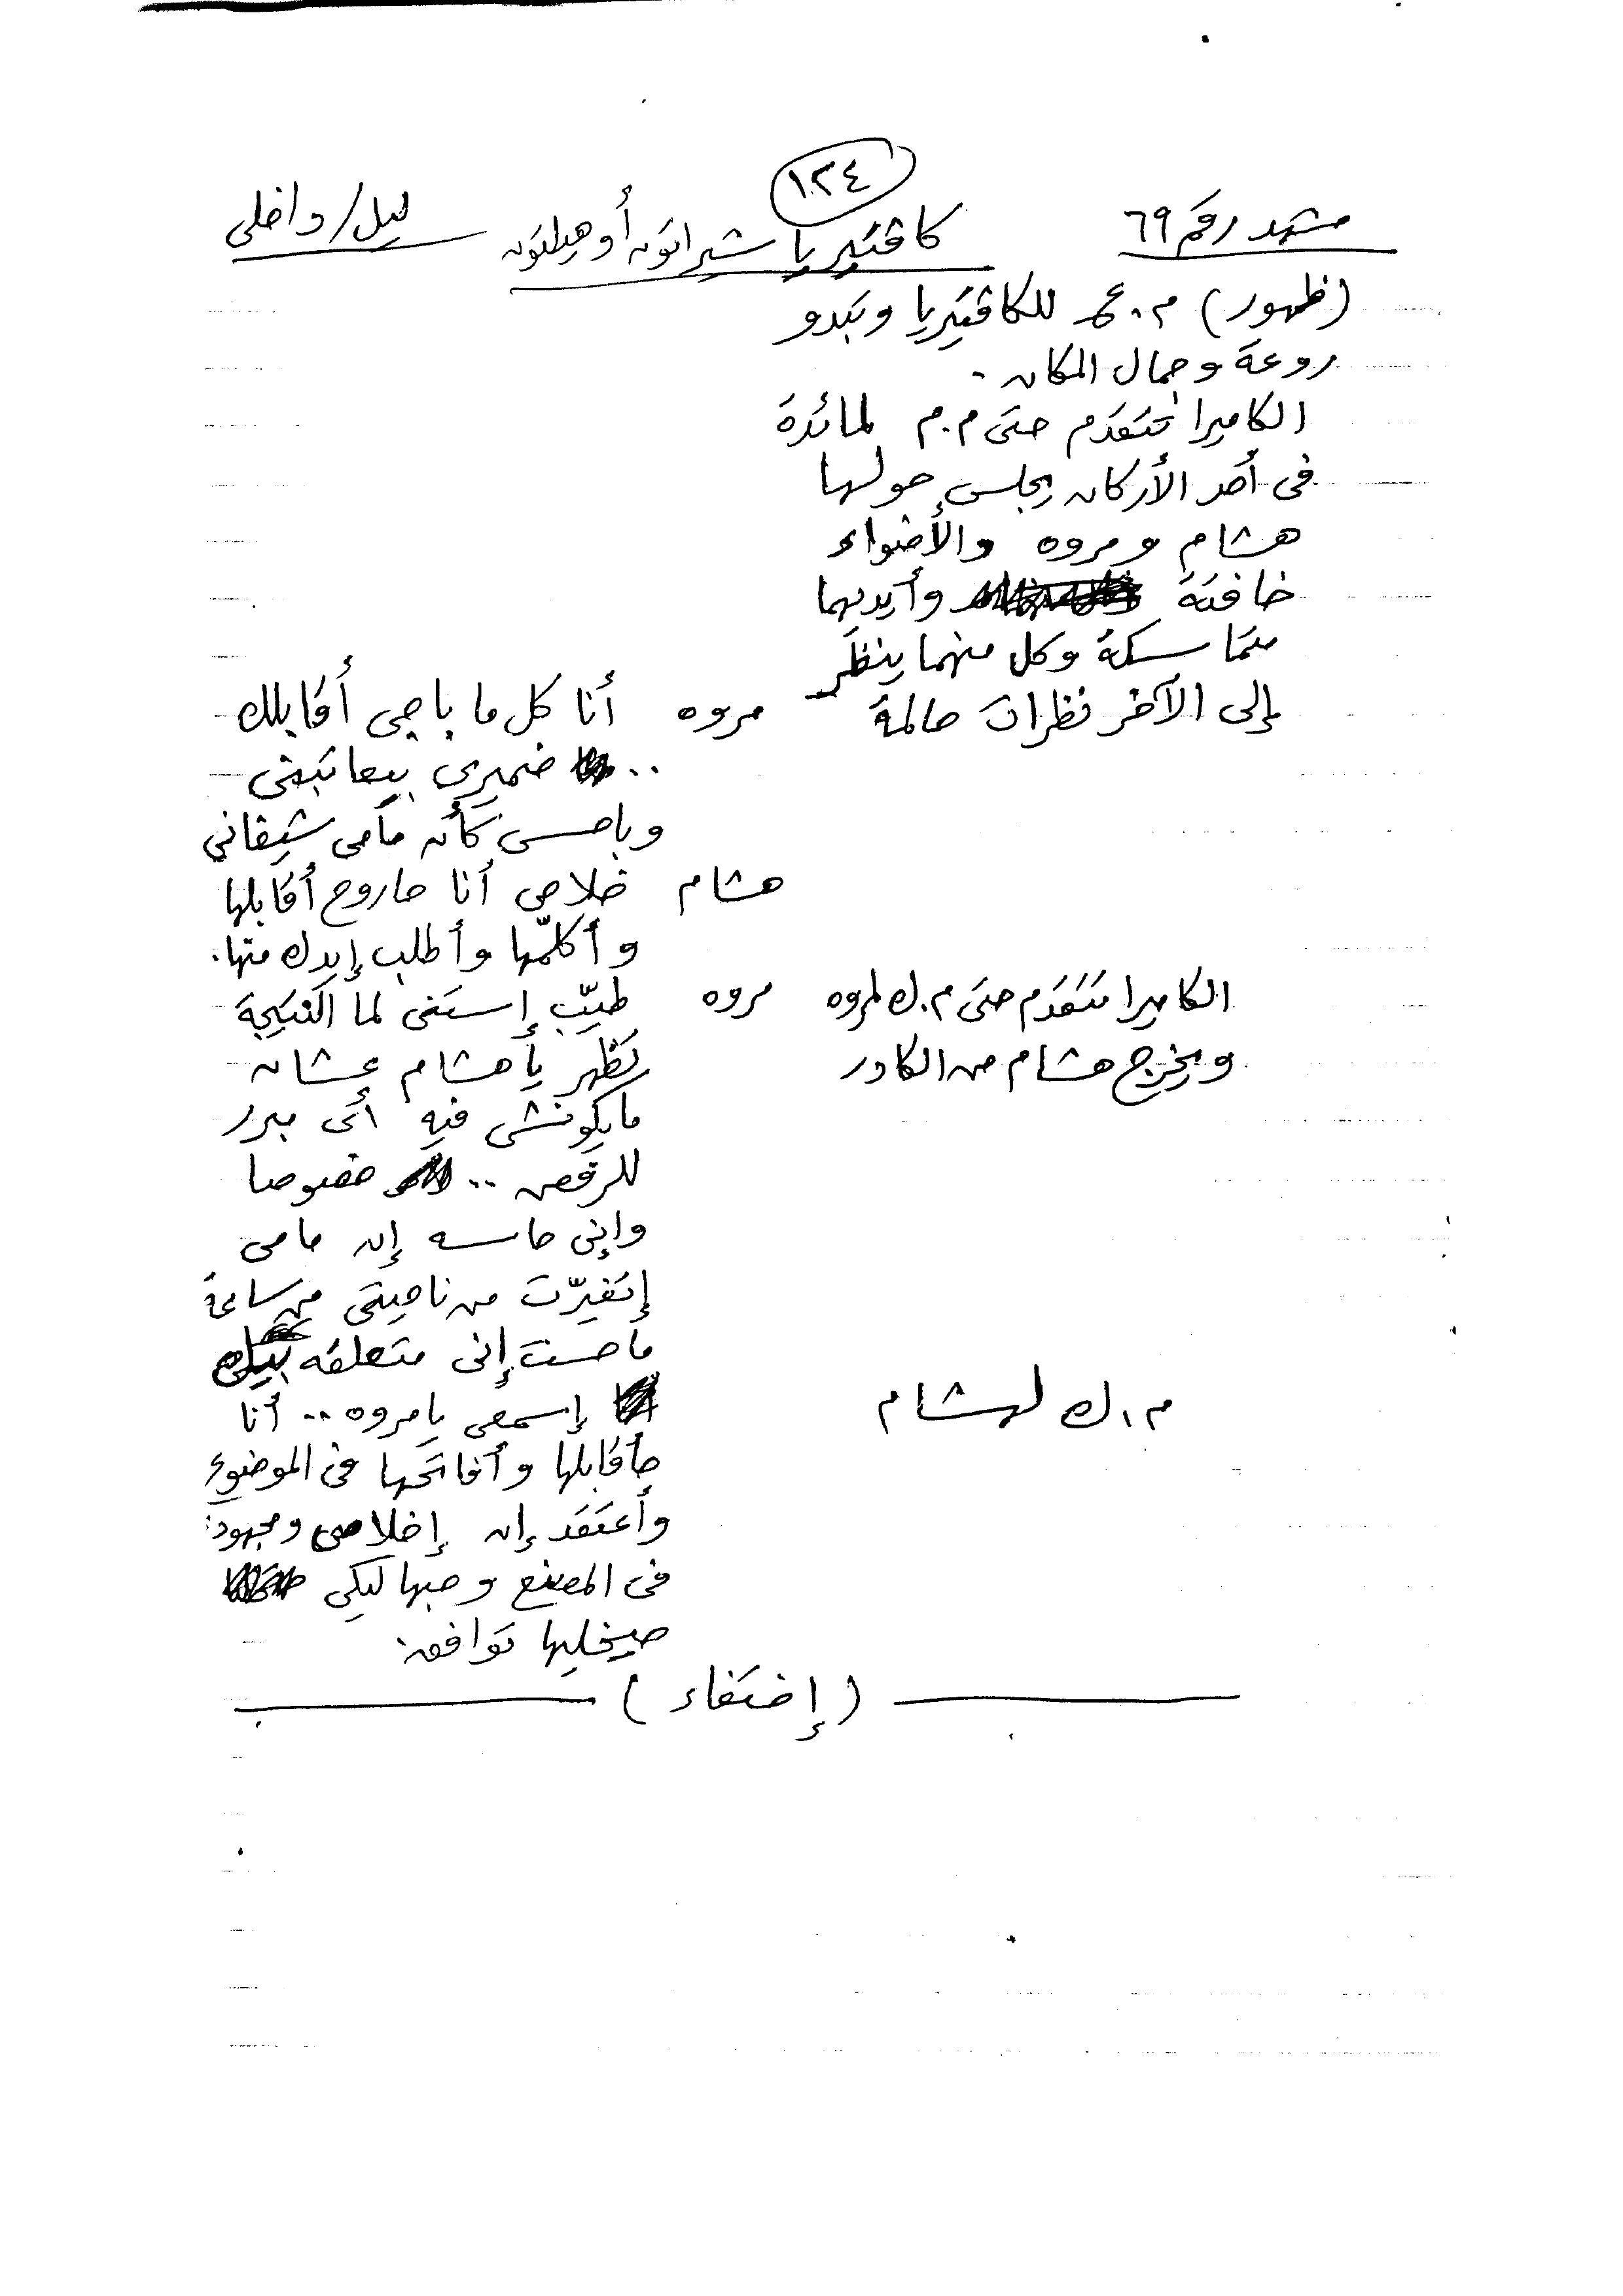 ١٢٤
مشهد رقم ٦٩ كافتيريا شيراتون أو هيلتون ليل/داخلى
(ظهور) م.ع للكافتيريا وتبدو
روعة وجمال المكان.
الكاميرا تتقدم حتى م.م لمائدة
فى أحد الأركان يجلس حولها
هشام ومروه والأضواء
خافتة وأيديهما
متماسكة وكل منهما ينظر
إلى الآخر نظرات حالمة
مروه أنا كل ما باجى أقابلك
.. ضميرى بيعاتبنى
وباحس كأن مامى شيفانى
هشام خلاص أنا حاروح أقابلها
وأكلّمها وأطلب إيدك منها.
الكاميرا تتقدم حتى م.ك لمروه
ويخرج هشام من الكادر
مروه طيّب إستنى لما النتيجة
تظهر يا هشام عشان
مايكونشى فيه أى مبرر
للرفض .. خصوصا
وإنى حاسه إن مامى
إتغيرّت من ناحيتى من ساعة
ماحست إنى متعلقه بيك
م.ك لهشام
إسمعى يا مروه .. أنا
حأقابلها وأفاتحها فى الموضوع
وأعتقد إن إخلاصى ومجهودى
فى المصنع وحبها ليكى
حيخليها توافق.
(إختفاء)